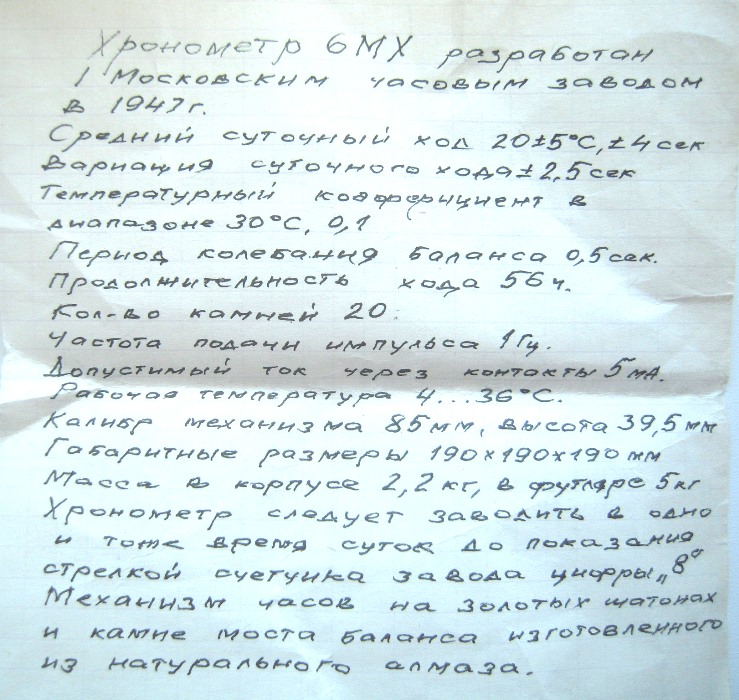 Хронометр 6МХ разработан
I Московским часовым заводом
в 1947г.
Средний суточный ход 20±5°С, ±4 сек
Вариация суточного хода ± 2,5 сек
Температурный коэффициент в
диапазоне 30°С, 0,1
Период колебания баланса 0,5 сек.
Продолжительность хода 56 ч.
Кол-во камней 20.
Частота подачи импульса 1 Гц.
Допустимый ток через контакты 5 мА.
Рабочая температура 4...36°С.
Калибр механизма 85 мм, высота 39,5 мм
Габаритные размеры 190×190×190 мм
Масса в корпусе 2,2 кг, в футляре 5 кг
Хронометр следует заводить в одно
и тоже время суток до показания
стрелкой счетчика завода цифры „8“
Механизм часов на золотых шатонах
и камне моста баланса изготовленного
из натурального алмаза.